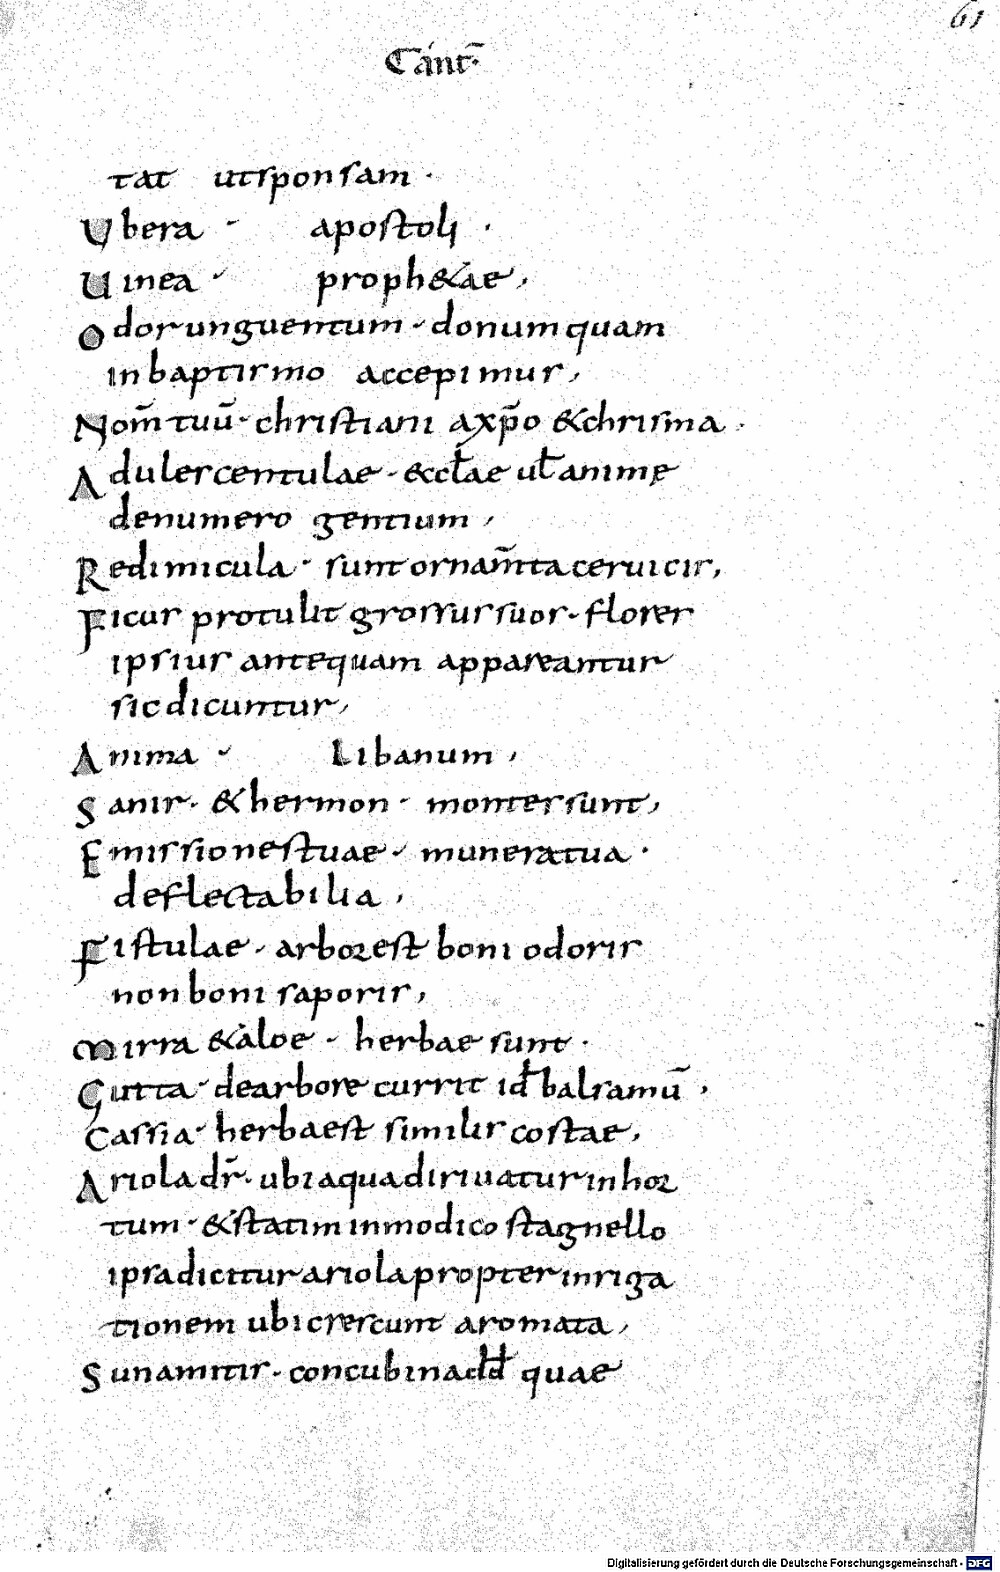 61
Cant̄·
tat ut sponsam ·
Ubera · apostoli ·
Uinea · proph&ae,
Odor unguentum · donum quam
in baptismo accepimus,
Nom̄ tuū · christiani a xp̄o & chrisma ·
Adulescentulae · eccl̄ae ul̄ animę
de numero gentium,
Redimicula · sunt ornam̄ta ceruicis,
Ficus protulit grossus suos · flores
ipsius antequam appareantur
sic dicuntur,
Anima · Libanum,
Sanir · & hermon · montes sunt,
Emissiones tuae · munera tua ·
deflectabilia,
Fistulae · arbor est boni odoris
non boni saporis,
Mirra & aloe · herbae sunt ·
Gutta · de arbore currit id̄ balsamū,
Cassia · herba est similis costae,
Ariola dr̄ · ubi aqua diriuatur in hor
tum · & statim in modico stagnello
ipsa dicitur ariola propter inriga
tionem ubi crescunt aromata,
Sunamitis · concubina dd̄ quae
Digitalisierung gefördert durch die Deutsche Forschungsgemeinschaft · DFG